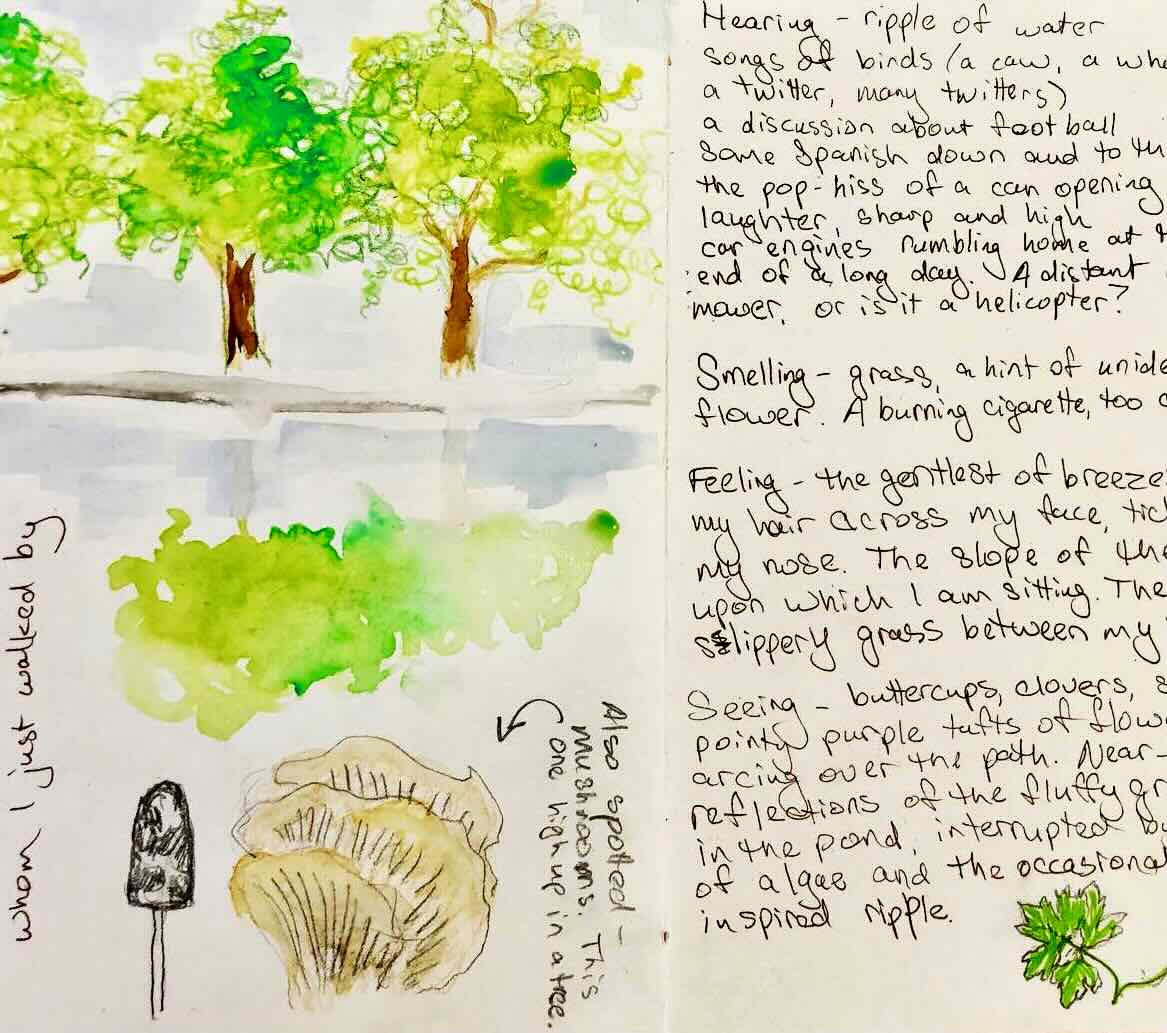 whom I just walked by
Also spotted –
mushrooms. This
one high up in a tree.
Hearing – ripple of water
songs of birds (a caw, a
a twitter, many twitters)
a discussion about football
some Spanish down and to
the pop-hiss of a can opening
laughter, sharp and high
car engines rumbling home at
end of a long day. A distant
mower, or is it a helicopter?
Smelling – grass, a hint of
flower. A burning cigarette, too
Feeling – the gentlest of
my hair across my face,
my nose. The slope of
upon which I am sitting. The
slippery grass between my
Seeing – buttercups, clovers,
pointy purple tufts of
arcing over the path. Near-
reflections of the fluffy
in the pond, interrupted
of algae and the occasional
inspired ripple.